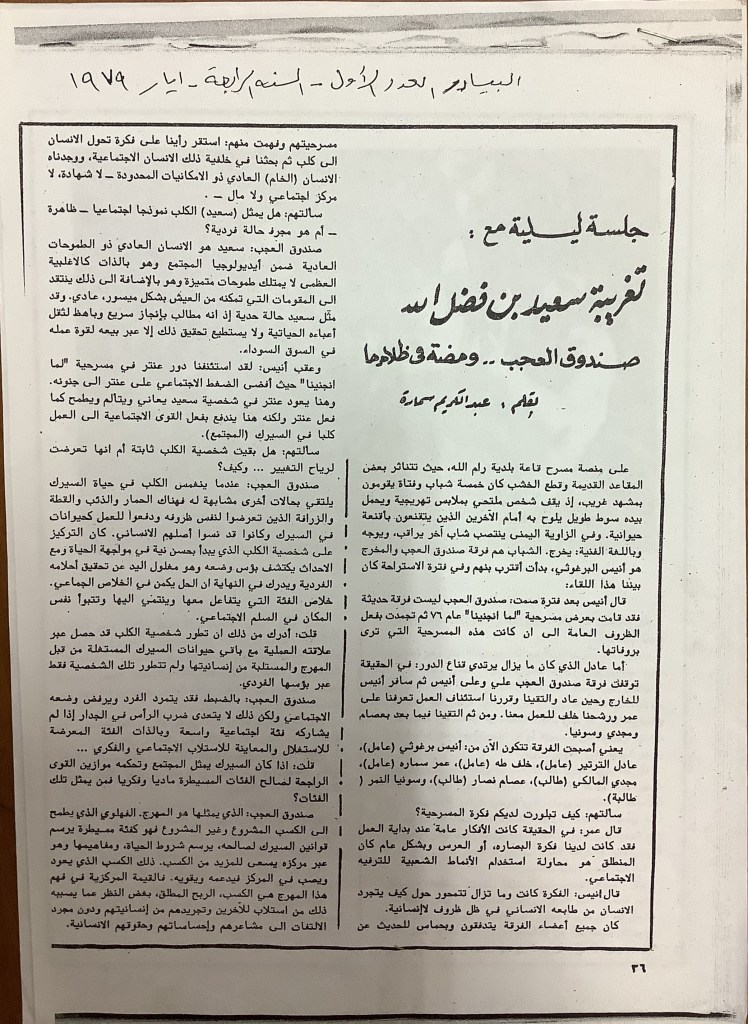 البيادر العدد الأول - السنة الرابعة - ايار ١٩٧٩
جلسة ليلية مع :
تغريبة سعيد بن فضل الله
صندوق العجب .. ومضة في ظلامها
بقلم : عبد الكريم سمارة
على منصة مسرح قاعة بلدية رام الله، حيث تتناثر بعض
المقاعد القديمة وقطع الخشب كان خمسة شباب وفتاة يقومون
بمشهد غريب، إذ يقف شخص ملتحي بملابس تهريجية ويحمل
بيده سوط طويل يلوح به أمام الآخرين الذين يتقنعون بأقنعة
حيوانية. وفي الزاوية اليمنى ينتصب شاب آخر يراقب، ويوجه
وباللغة الفنية: يخرج. الشباب هم فرقة صندوق العجب والمخرج
هو أنيس البرغوثي، بدأت أقترب بنهم وفي فترة الاستراحة كان
بيننا هذا اللقاء:
قال أنيس بعد فترة صمت: صندوق العجب ليست فرقة حديثة
فقد قامت بعرض مسرحية "لما انجنينا" عام ٧٦ ثم تجمدت بفعل
الظروف العامة الى ان كانت هذه المسرحية التي ترى
بروفاتها.
أما عادل الذي كان ما يزال يرتدي قناع الدور: في الحقيقة
توقفت فرقة صندوق العجب علي وعلى أنيس ثم سافر أنيس
للخارج وحين عاد والتقينا وقررنا استئناف العمل تعرفنا على
عمر ورشحنا خلف للعمل معنا. ومن ثم التقينا فيما بعد بعصام
ومجدي وسونيا.
يعني أصبحت الفرقة تتكون الآن من: أنيس برغوثي (عامل)،
عادل الترتير (عامل)، خلف طه (عامل)، عمر سماره (عامل)،
مجدي المالكي (طالب)، عصام نصار (طالب)، وسونيا النمر (
طالبة).
سألتهم: كيف تبلورت لديكم فكرة المسرحية؟
قال عمر: في الحقيقة كانت الأفكار عامة عند بداية العمل
فقد كانت لدينا فكرة البصاره، أو العرس وبشكل عام كان
المنطلق هو محاولة استخدام الأنماط الشعبية للترفيه
الاجتماعي.
قال إنيس: الفكرة كانت وما تزال تتمحور حول كيف يتجرد
الانسان من طابعه الانساني في ظل ظروف لاإنسانية.
كان جميع أعضاء الفرقة يتدفقون وبحماس للحديث عن
مسرحيتهم وفهمت منهم: استقر رأينا على فكرة تحول الانسان
الى كلب ثم بحثنا في خلفية ذلك الانسان الاجتماعية، ووجدناه
الانسان (الخام) العادي ذو الامكانيات المحدودة ــ لا شهادة، لا
مركز اجتماعي ولا مال ــ .
سألتهم: هل يمثل (سعيد) الكلب نموذجا اجتماعيا ــ ظاهرة
ــ أم هو مجرد حالة فردية؟
صندوق العجب: سعيد هو الانسان العادي ذو الطموحات
العادية ضمن أيديولوجيا المجتمع وهو بالذات كالاغلبية
العظمى لا يمتلك طموحات متميزة وهو بالإضافة الى ذلك ينتقد
الى المقومات التي تمكنه من العيش بشكل ميسور، عادي. وقد
مثّل سعيد حالة حدية إذ انه مطالب بإنجاز سريع وباهظ لثقل
أعباءه الحياتية ولا يستطيع تحقيق ذلك إلا عبر بيعه لقوة عمله
في السوق السوداء.
وعقب أنيس: لقد استئنفنا دور عنتر في مسرحية "لما
انجنينا" حيث أفضى الضغط الاجتماعي على عنتر الى جنونه.
وهنا يعود عنتر في شخصية سعيد يعاني ويتالم ويطمح كما
فعل عنتر ولكنه هنا يندفع بفعل القوى الاجتماعية الى العمل
كلبا في السيرك (المجتمع).
سألتهم: هل بقيت شخصية الكلب ثابتة أم انها تعرضت
لرياح التغيير ... وكيف؟
صندوق العجب: عندما ينغمس الكلب في حياة السيرك
يلتقي بحالات أخرى مشابهة له فهناك الحمار والذئب والقطة
والزرافة الذين تعرضوا لنفس ظروفه ودفعوا للعمل كحيوانات
في السيرك وكانوا قد نسوا أصلهم الانساني. كان التركيز
على شخصية الكلب الذي يبدأ بحسن نية في مواجهة الحياة ومع
الاحداث يكتشف بؤس وضعه وهو مغلول اليد عن تحقيق أحلامه
الفردية ويدرك في النهاية ان الحل يكمن في الخلاص الجماعي.
خلاص الفئة التي يتفاعل معها وينتمي اليها وتتبوأ نفس
المكان في السلم الاجتماعي.
قلت: أدرك من ذلك ان تطور شخصية الكلب قد حصل عبر
علاقته العملية مع باقي حيوانات السيرك المستغلة من قبل
المهرج والمستلبة من إنسانيتها ولم تتطور تلك الشخصية فقط
عبر بؤسها الفردي.
صندوق العجب: بالضبط، فقد يتمرد الفرد ويرفض وضعه
الاجتماعي ولكن ذلك لا يتعدى ضرب الرأس في الجدار إذا لم
يشاركه فئة اجتماعية واسعة وبالذات الفئة المعرضة
للاستغلال والمعاينة للاستلاب الاجتماعي والفكري ...
قلت: اذا كان السيرك يمثل المجتمع وتحكمه موازين القوى
الراجحة لصالح الفئات المسيطرة ماديا وفكريا فمن يمثل تلك
الفئات؟
صندوق العجب: الذي يمثلها هو المهرج. الفهلوي الذي يطمح
الى الكسب المشروع وغير المشروع فهو كفئة مسيطرة يرسم
قوانين السيرك لصالحه، يرسم شروط الحياة، ومفاهيمها وهو
عبر مركزه يسعى للمزيد من الكسب. ذلك الكسب الذي يعود
ويصب في المركز فيدعمه ويقويه. فالقيمة المركزية في فهم
هذا المهرج هي الكسب، الربح المطلق، بغض النظر عما يسببه
ذلك من استلاب للآخرين وتجريدهم من إنسانيتهم ودون مجرد
الالتفات الى مشاعرهم وإحساساتهم وحقوقهم الانسانية.
٣٦